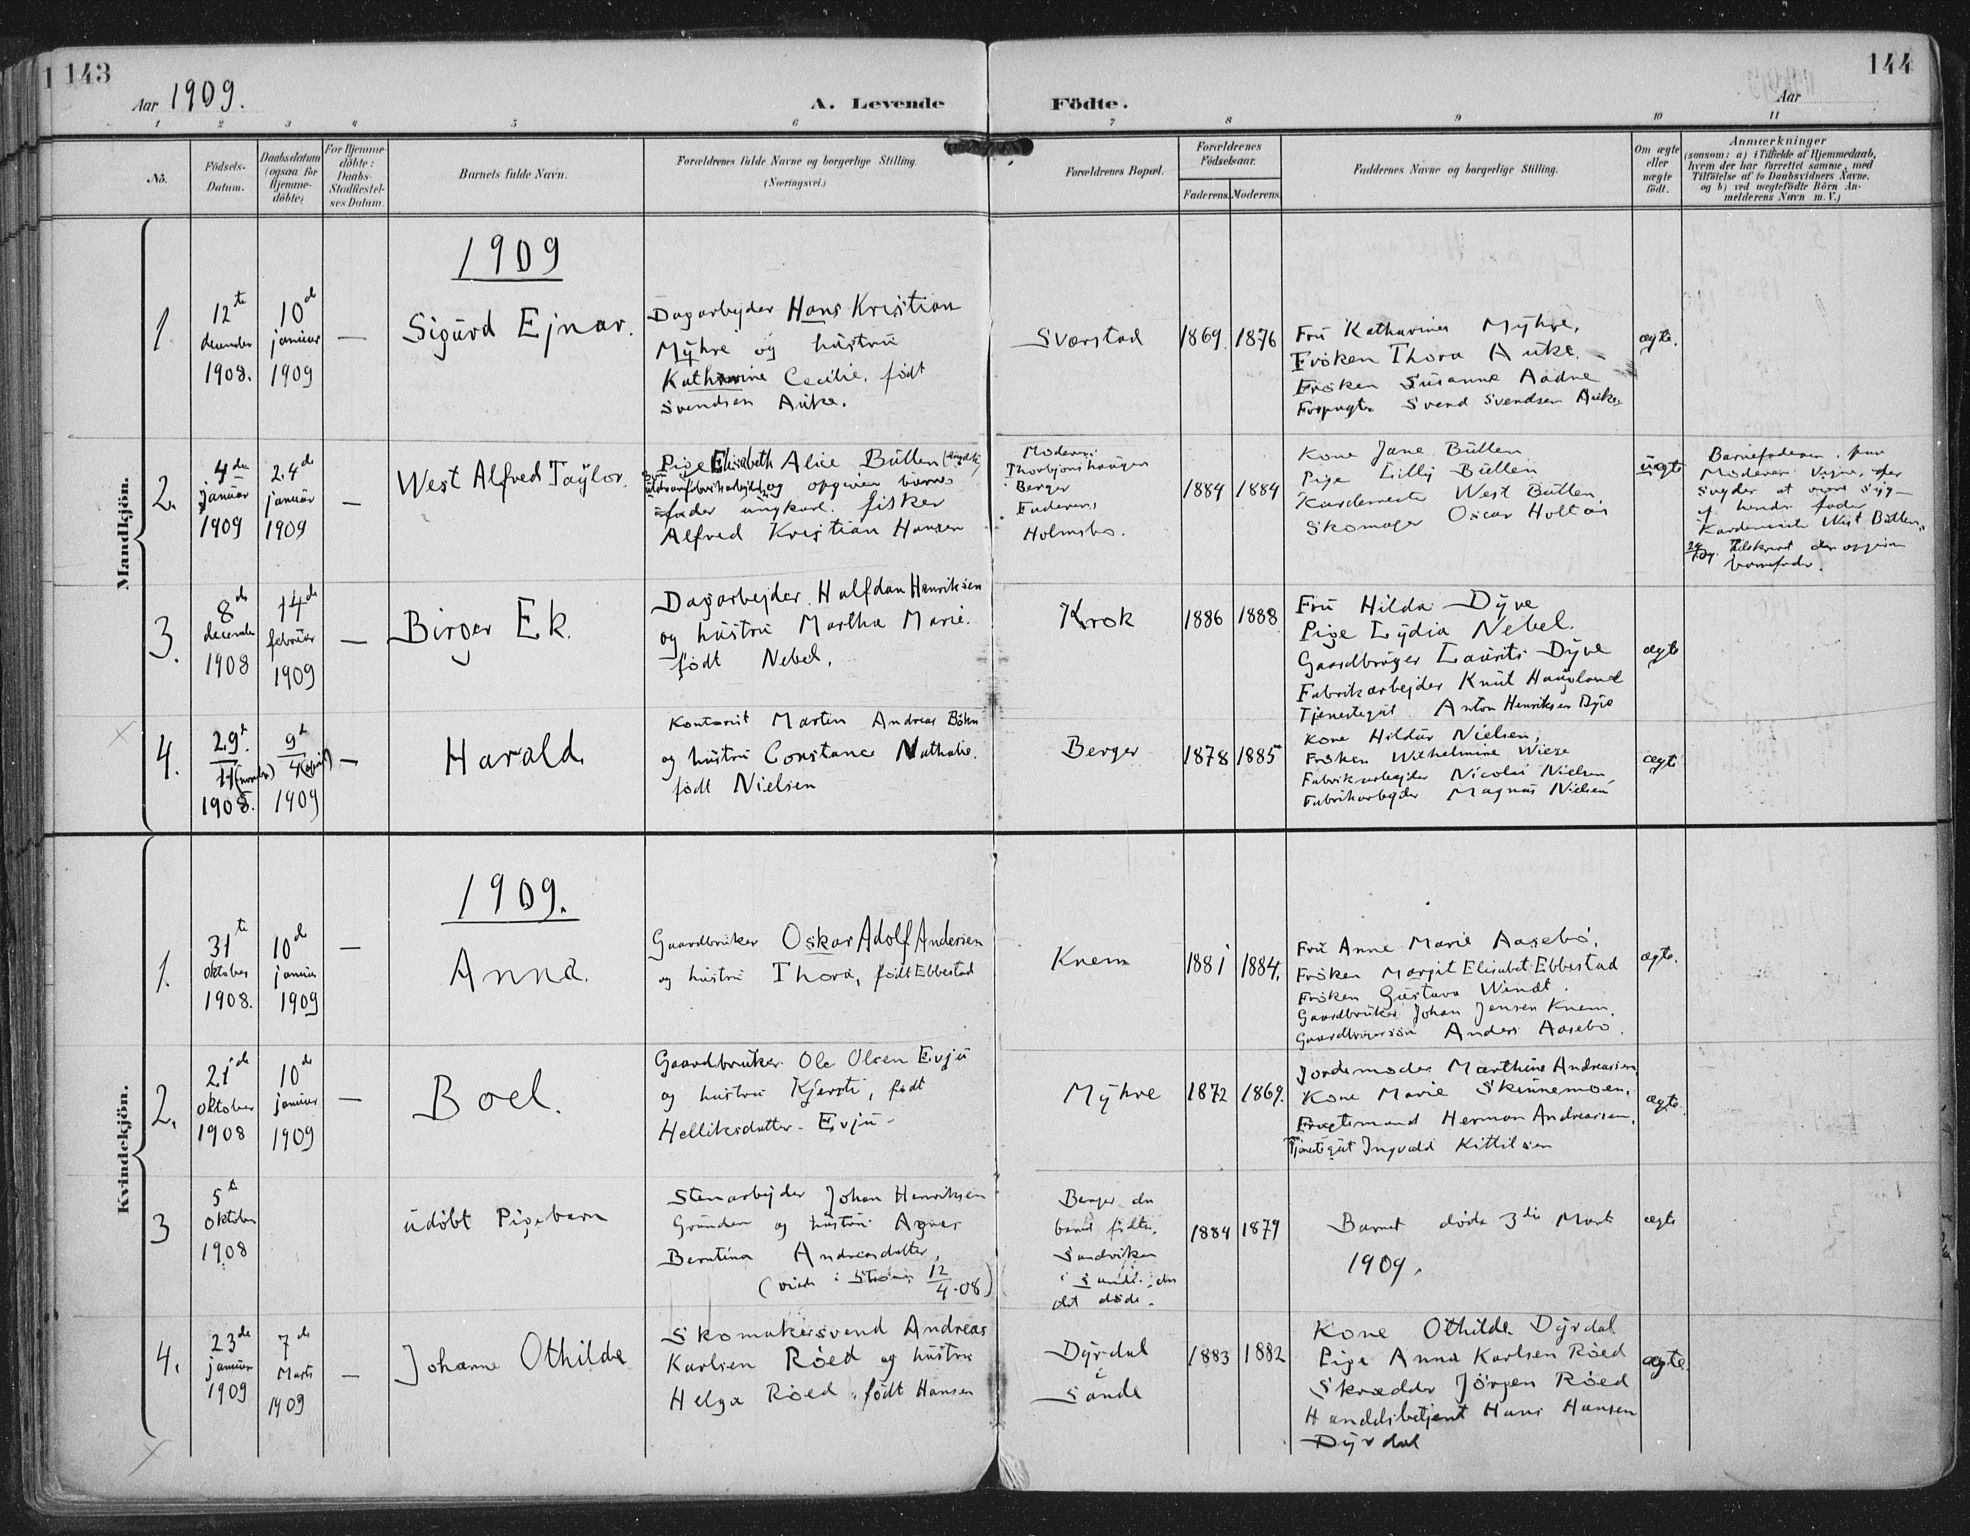 143
Aar 1909.
A. Levende
Födte.
144
Aar
1 2 3 4 5 6 7 8 9 10 11
No.
Födsels-
Datum.
Daabsdatum
(ogsaa for
Hjemme-
döbte)
For Hjemme-
döbte:
Daabs-
Stadfæstel-
ses Datum.
Barnets fulde Navn.
Forældrenes fulde Navne og borgerlige Stilling.
(Næringsvei.)
Forældrenes Bopæl.
Forældrenes
Födselsaar.
Faderens. Moderens.
Faddernes Navne og borgerlige Stilling.
Om ægte
eller
uægte
födt.
Anmærkninger
(saasom: a) i Tilfælde af Hjemmedaab,
hvem der har forrettet samme, med
Tilföielse af to Daabsvidners Navne,
og b) ved uægtefödte Börn An-
melderens Navn m. V.)
Mandkjön.
1909
1
12te
december
1908.
10de
januar
1909
—
Sigurd Ejnar.
Dagarbejder Hans Kristian
Myhre og hustru
Kathrine Cecilie, født
Svendsen Auke.
Sværstad
1869. 1876
Fru Katharina Myhre.
Frøken Thora Auke.
Frøken Susanne Aadne
Forpagter Svend Svendsen Auke
ægte.
2.
4de
januar
1909
24de
januar
1909
—
West Alfred Taylor.
Pige Elisabeth Alice Bütten
og opgiven barne-
fader ungkarl fisker
Alfred Kristian Hansen
Moderens
Thorbjørnshaugen
Berger
Faderens
Holmsbo.
1884 1884
Kone Jane Bütten
Pige Lilly Bütten
Kardemester West Bütten.
Skomager Oscar Holtan
uægte
Barnefaderen.
Moderen
at være
hendes fader
Kardemester West Bütten.
Tilskrevet den opgivne
barnefader.
3.
8de
december
1908
14de
februar
1909
—
Birger Ek.
Dagarbejder Halfdan Henriksen
og hustru Martha Marie.
født Nebel.
Krok
1886 1888
Fru Hilda Dyve
Pige Lydia Nebel.
Gaardbruger Laurits Dyve
Fabrikarbejder Knut Haugland
Tjenestegut Anton Henriksen Dyve
ægte
4.
29de
11 (novbr)
1908.
9de
4 (april)
1909
—
Harald.
Kontorist Martin Andreas Böhn
og hustru Constance Nathalie.
født Nielsen
Berger
1878 1885
Kone Hildur Nielsen,
Frøken Wilhelmine Wiese
Fabrikarbejder Nicolai Nielsen,
Fabrikarbejder Magnus Nielsen
ægte
Kvindekjön.
1909.
1.
31te
oktober
1908.
10de
januar
1909
—
Anna.
Gaardbruker Oskar Adolf Andersen
og hustru Thora, født Ebbestad
Knem
1881 1884.
Fru Anne Marie Aasebö.
Frøken Margit Elisabet Ebbestad
Frøken Gustava Windt.
Gaardbruker Johan Jensen Knem.
Gaardbrugersøn Anders Aasebö.
ægte.
2.
21de
oktober
1908
10de
januar
1909
—
Boel.
Gaardbruker Ole Olsen Evju
og hustru Kjersti, født
Helliksdatter Evju
Myhre
1872 1869.
Jordemoder Marthine Andreasen
Kone Marie Skinnemoen.
Fragtemand Herman Andreasen.
Tjenestegut Ingvald Kittilsen
ægte.
3
5te
oktober
1908
udøbt Pigebarn
Stenarbejder Johan Henriksen
Grunden og hustru Agnes
Berntina Andreasdatter,
(viede i Strømm 12/4.08)
Berger da
barnet fødtes.
Sandviken
i Sande, da
det døde.
1884 1879
Barnet døde 3die Marts
1909.
ægte
4.
23de
januar
1909
7de
Marts
1909
—
Johanne Othilde
Skomakersvend Andreas
Karlsen Røed og hustru
Helga Røed, født Hansen
Dyrdal
i
Sande
1883 1882
Kone Othilde Dyrdal
Pige Anna Karlsen Røed
Skrædder Jörgen Røed
Handelsbetjent Hans Hansen
Dyrdal
ægte.